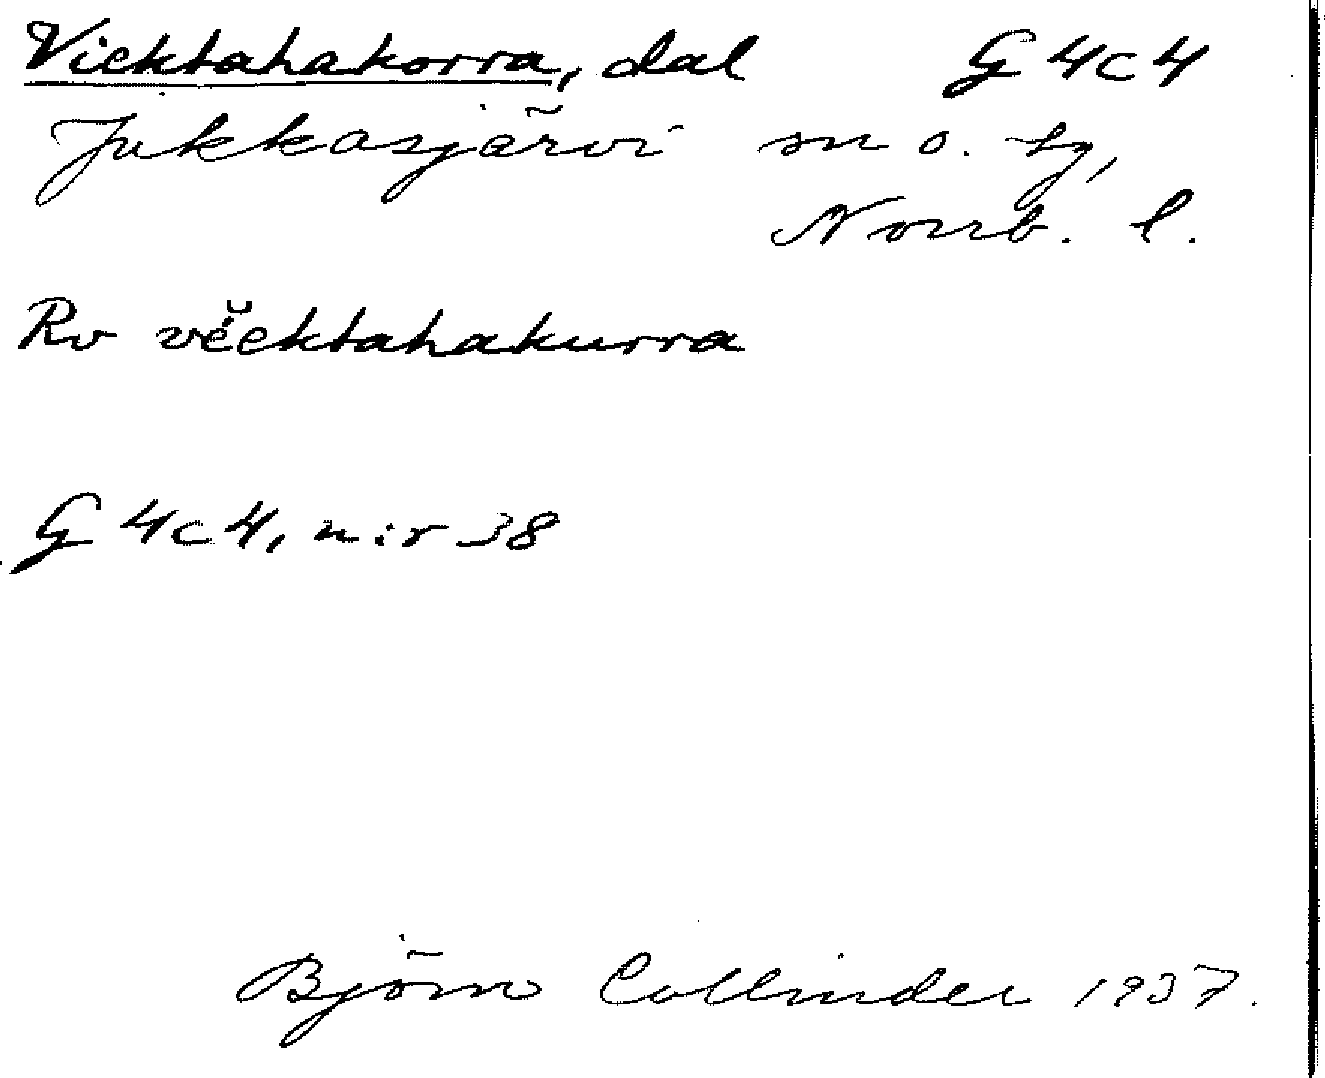 Vicktahakorra, dal G 4c4
Jukkasjärvi sn o. tg,
Norrb. l.
Rv vĕcktahakurra
G 4c4, n:r 38
Björn Collinder 1937.